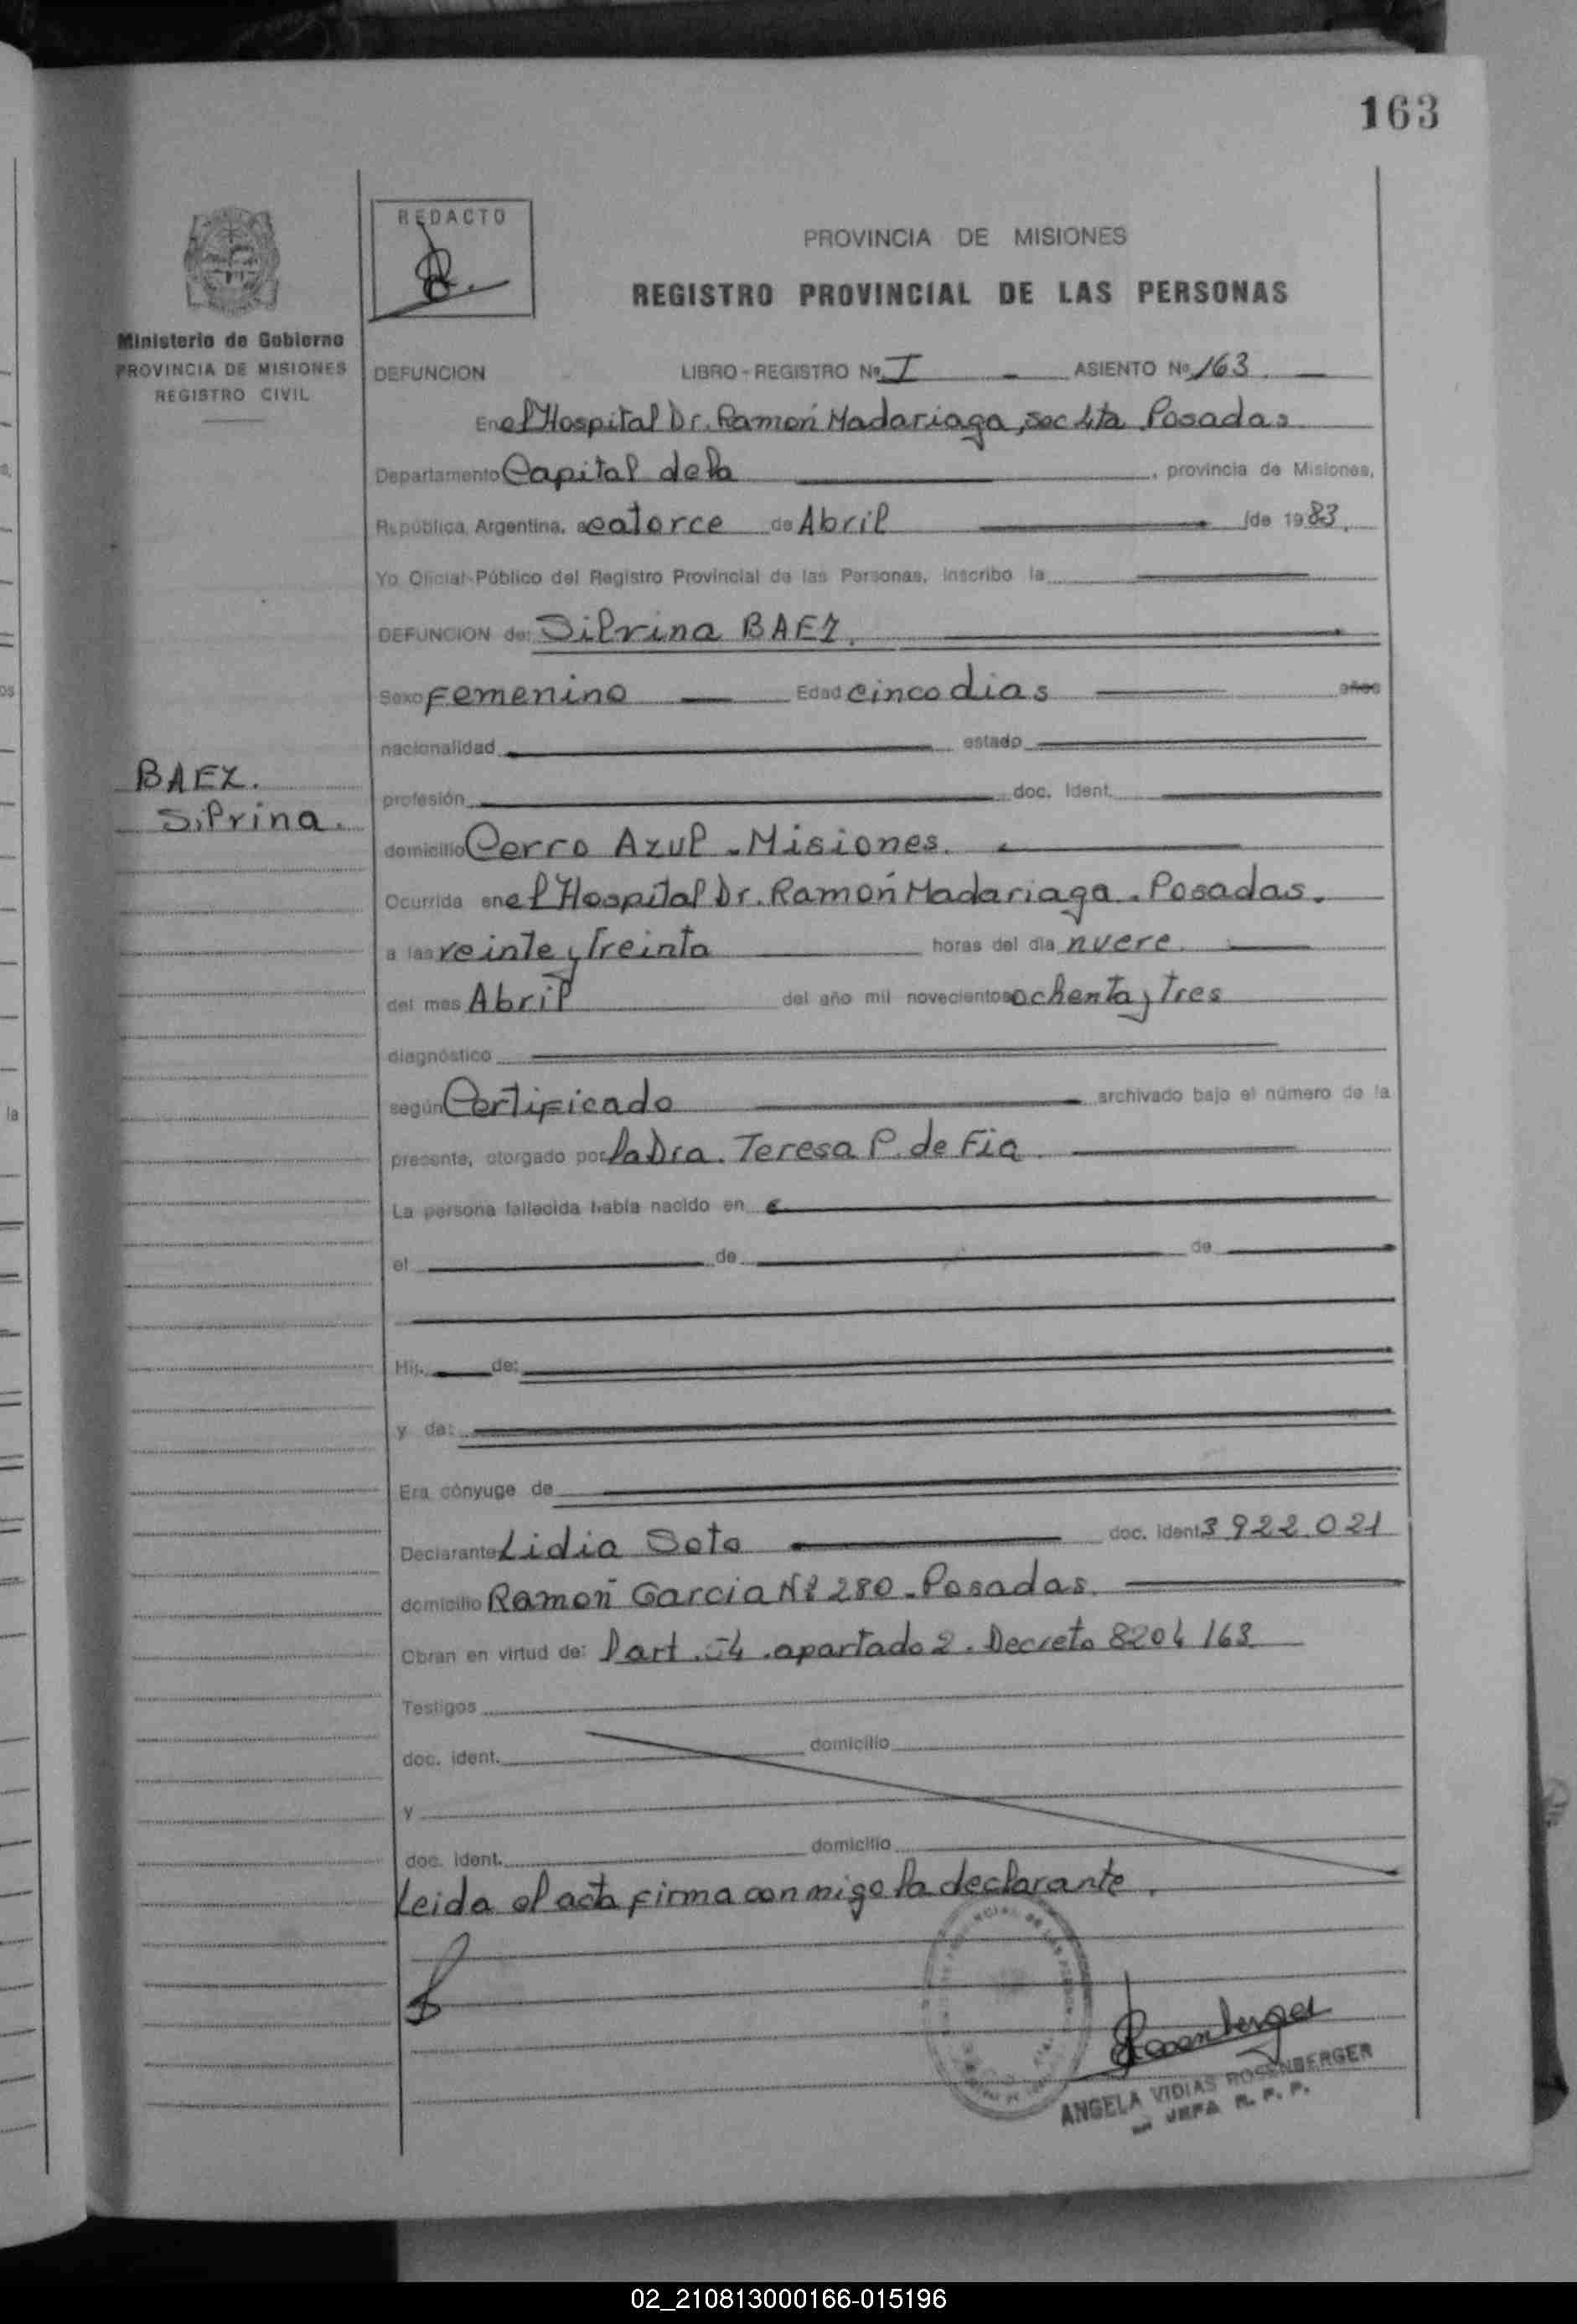 163
REDACTO
PROVINCIA DE MISIONES
REGISTRO PROVINCIAL DE LAS PERSONAS
Ministerio de Gobierno
PROVINCIA DE MISIONES
REGISTRO CIVIL
DEFUNCION LIBRO - REGISTRO Nº I ASIENTO Nº 163
En el Hospital Dr. Ramón Madariaga, sec 4ta Posadas
Departamento Capital de la , provincia de Misiones,
República Argentina, a catorce de Abril de 1983.
Yo Oficial Público del Registro Provincial de las Personas, inscribo la
DEFUNCION de: Silvina BAEZ.
Sexo Femenino Edad cinco dias años
nacionalidad estado
profesión doc. ident.
BAEZ.
Silvina.
domicilio Cerro Azul - Misiones.
Ocurrida en el Hospital Dr. Ramón Madariaga. Posadas.
a las veinte y treinta horas del día nueve
del mes Abril del año mil novecientos ochenta y tres
diagnóstico
según Certificado archivado bajo el número de la
presente, otorgado por la Dra. Teresa P. de Fia.
La persona fallecida había nacido en
el de de
Hij. de:
y de:
Era cónyuge de
Declarante Lidia Soto doc. ident. 3922.021
domicilio Ramón Garcia Nº 280 - Posadas.
Obran en virtud de: apartado 2. Decreto 8204/63
Testigos
doc. ident. domicilio
y
doc. ident. domicilio
Leida el acta firma conmigo la declarante.
ANGELA VIDIAS ROSENBERGER
JEFA R. P. P.
02_210813000166-015196